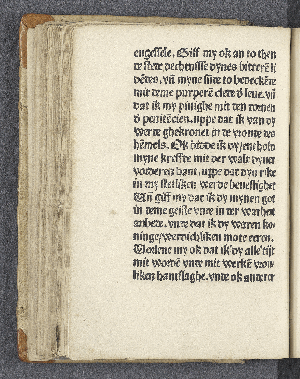 engestede. Giff my ok an to then
te stare dechtnisse dynes bitterē li
dēdes. vñ myne sūte to bedeckēne
mit teme purperē clete ð leue. vñ
dat ik my pinighe mit ten rornen
ð penitēcien. uppe dat ik van dy
wer te ghekronet in te vronte des
hēmels. Ok bidde ik dy ienc holt
myne kreffte mit der walt dyner
vorderen hant. uppe dat dyn rike
in my stetliken wer de bevestighet
Vñ giff my dat ik dy mynen got
in teme geiste vnte in ter warheit
anbete. vnte dat ik dy waren ko
ninge werdichliken mote eeren.
Vorlene my ok dat ik dy alle tijt
mit wordē vnte mit werkē vron
liken hantslaghe. vnte ok anterer